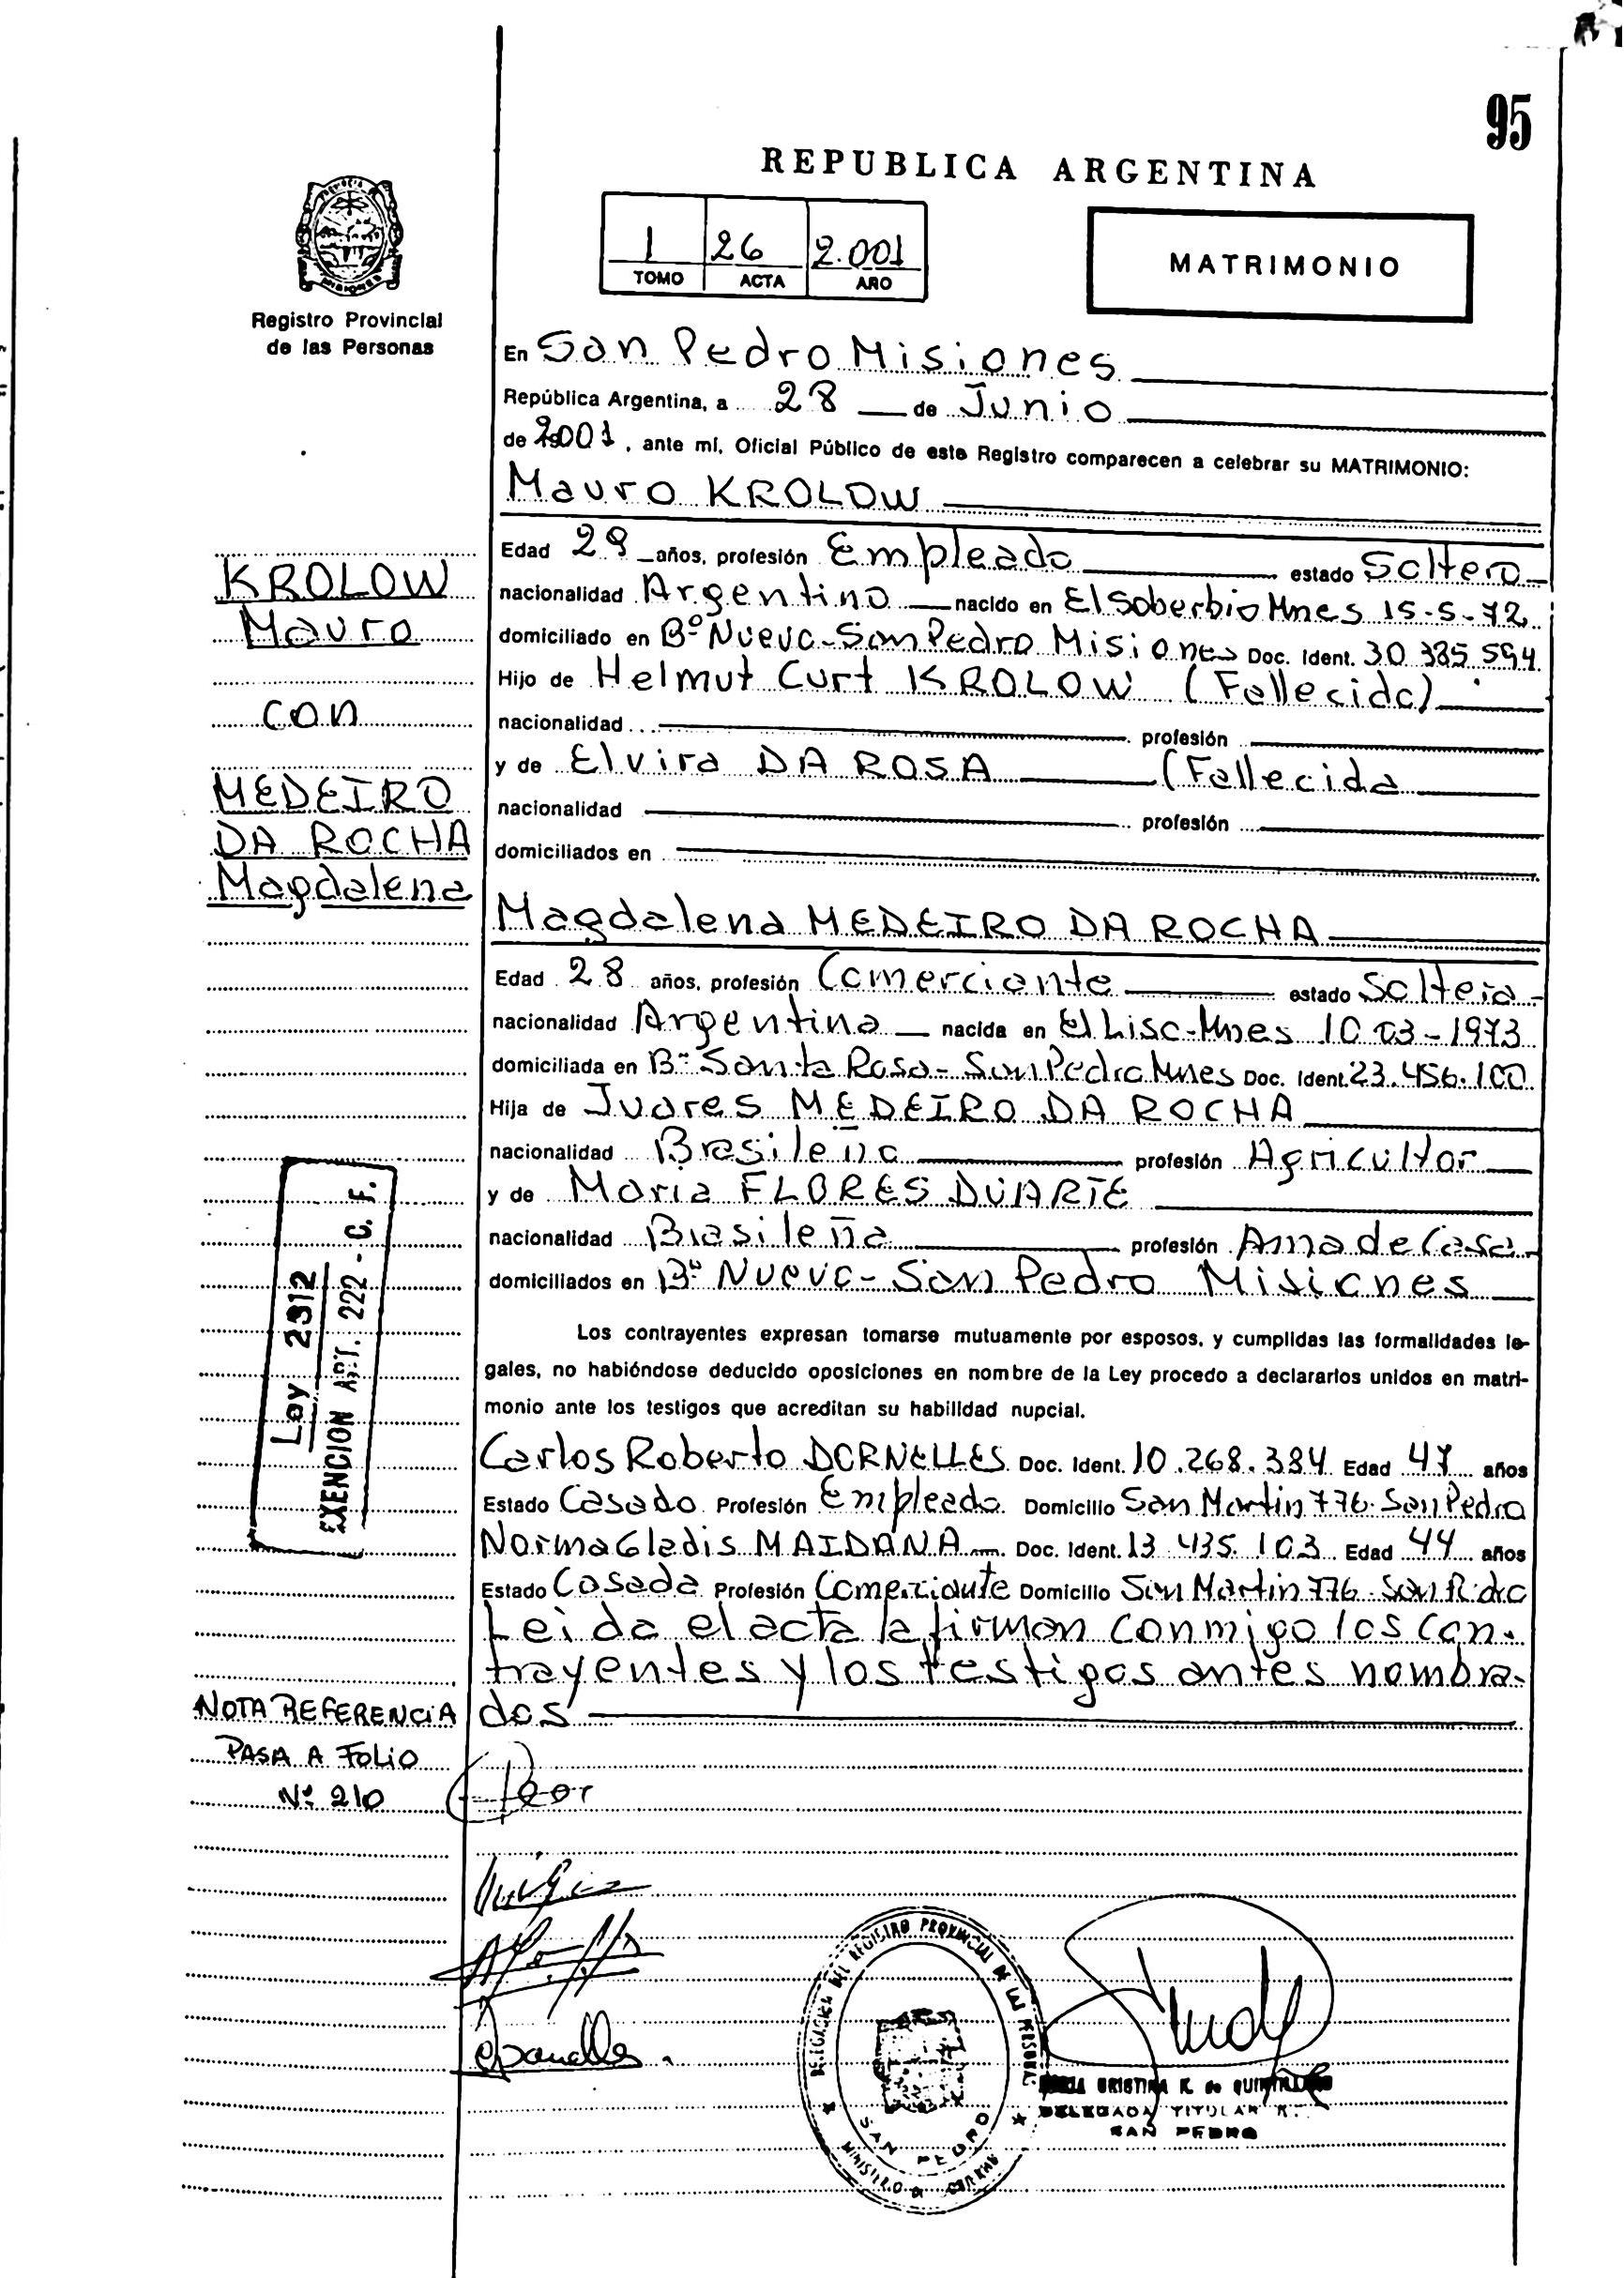 95
REPUBLICA ARGENTINA
1 26 2.001
TOMO ACTA AÑO
MATRIMONIO
Registro Provincial
de las Personas
En San Pedro Misiones
República Argentina, a 28 de Junio
de 2001, ante mí, Oficial Público de este Registro comparecen a celebrar su MATRIMONIO:
Mauro KROLOW
Edad 29 años, profesión Empleado estado Soltero
nacionalidad Argentino nacido en El Soberbio Mnes 15-5-72
domiciliado en Bº Nuevo-San Pedro Misiones Doc. Ident. 30 385 594
Hijo de Helmut Curt KROLOW (Fallecido)
nacionalidad profesión
y de Elvira DA ROSA (Fallecida
nacionalidad profesión
domiciliados en
KROLOW
Mauro
con
MEDEIRO
DA ROCHA
Magdalena
Magdalena MEDEIRO DA ROCHA
Edad 28 años, profesión Comerciante estado Soltera
nacionalidad Argentina nacida en El Liso-Mnes 10-03-1973
domiciliada en Bº Santa Rosa-San Pedro Mnes Doc. Ident. 23.456.100
Hija de Juares MEDEIRO DA ROCHA
nacionalidad Brasileña profesión Agricultor
y de Maria FLORES DUARTE
nacionalidad Brasileña profesión Ama de Casa
domiciliados en Bº Nuevo-San Pedro Misiones
Los contrayentes expresan tomarse mutuamente por esposos, y cumplidas las formalidades le-
gales, no habiéndose deducido oposiciones en nombre de la Ley procedo a declararlos unidos en matri-
monio ante los testigos que acreditan su habilidad nupcial.
Ley 2912
EXENCION ART. 222 - C. F.
Carlos Roberto DORNELLES Doc. Ident. 10.268.384 Edad 47 años
Estado Casado Profesión Empleado Domicilio San Martin 776-San Pedro
Norma Gladis MAIDANA Doc. Ident. 13 435. 103 Edad 44 años
Estado Casada Profesión Comerciante Domicilio San Martin 776-San Pedro
Leida el acta la firman conmigo los con-
trayentes y los testigos antes nombra-
dos
NOTA REFERENCIA
PASA A FOLIO
Nº 210
DELEGACION DEL REGISTRO PROVINCIAL DE LAS PERSONAS
SAN PEDRO
MINISTERIO DE GOBIERNO
MARIA CRISTINA K. de
DELEGADA TITULAR
SAN PEDRO